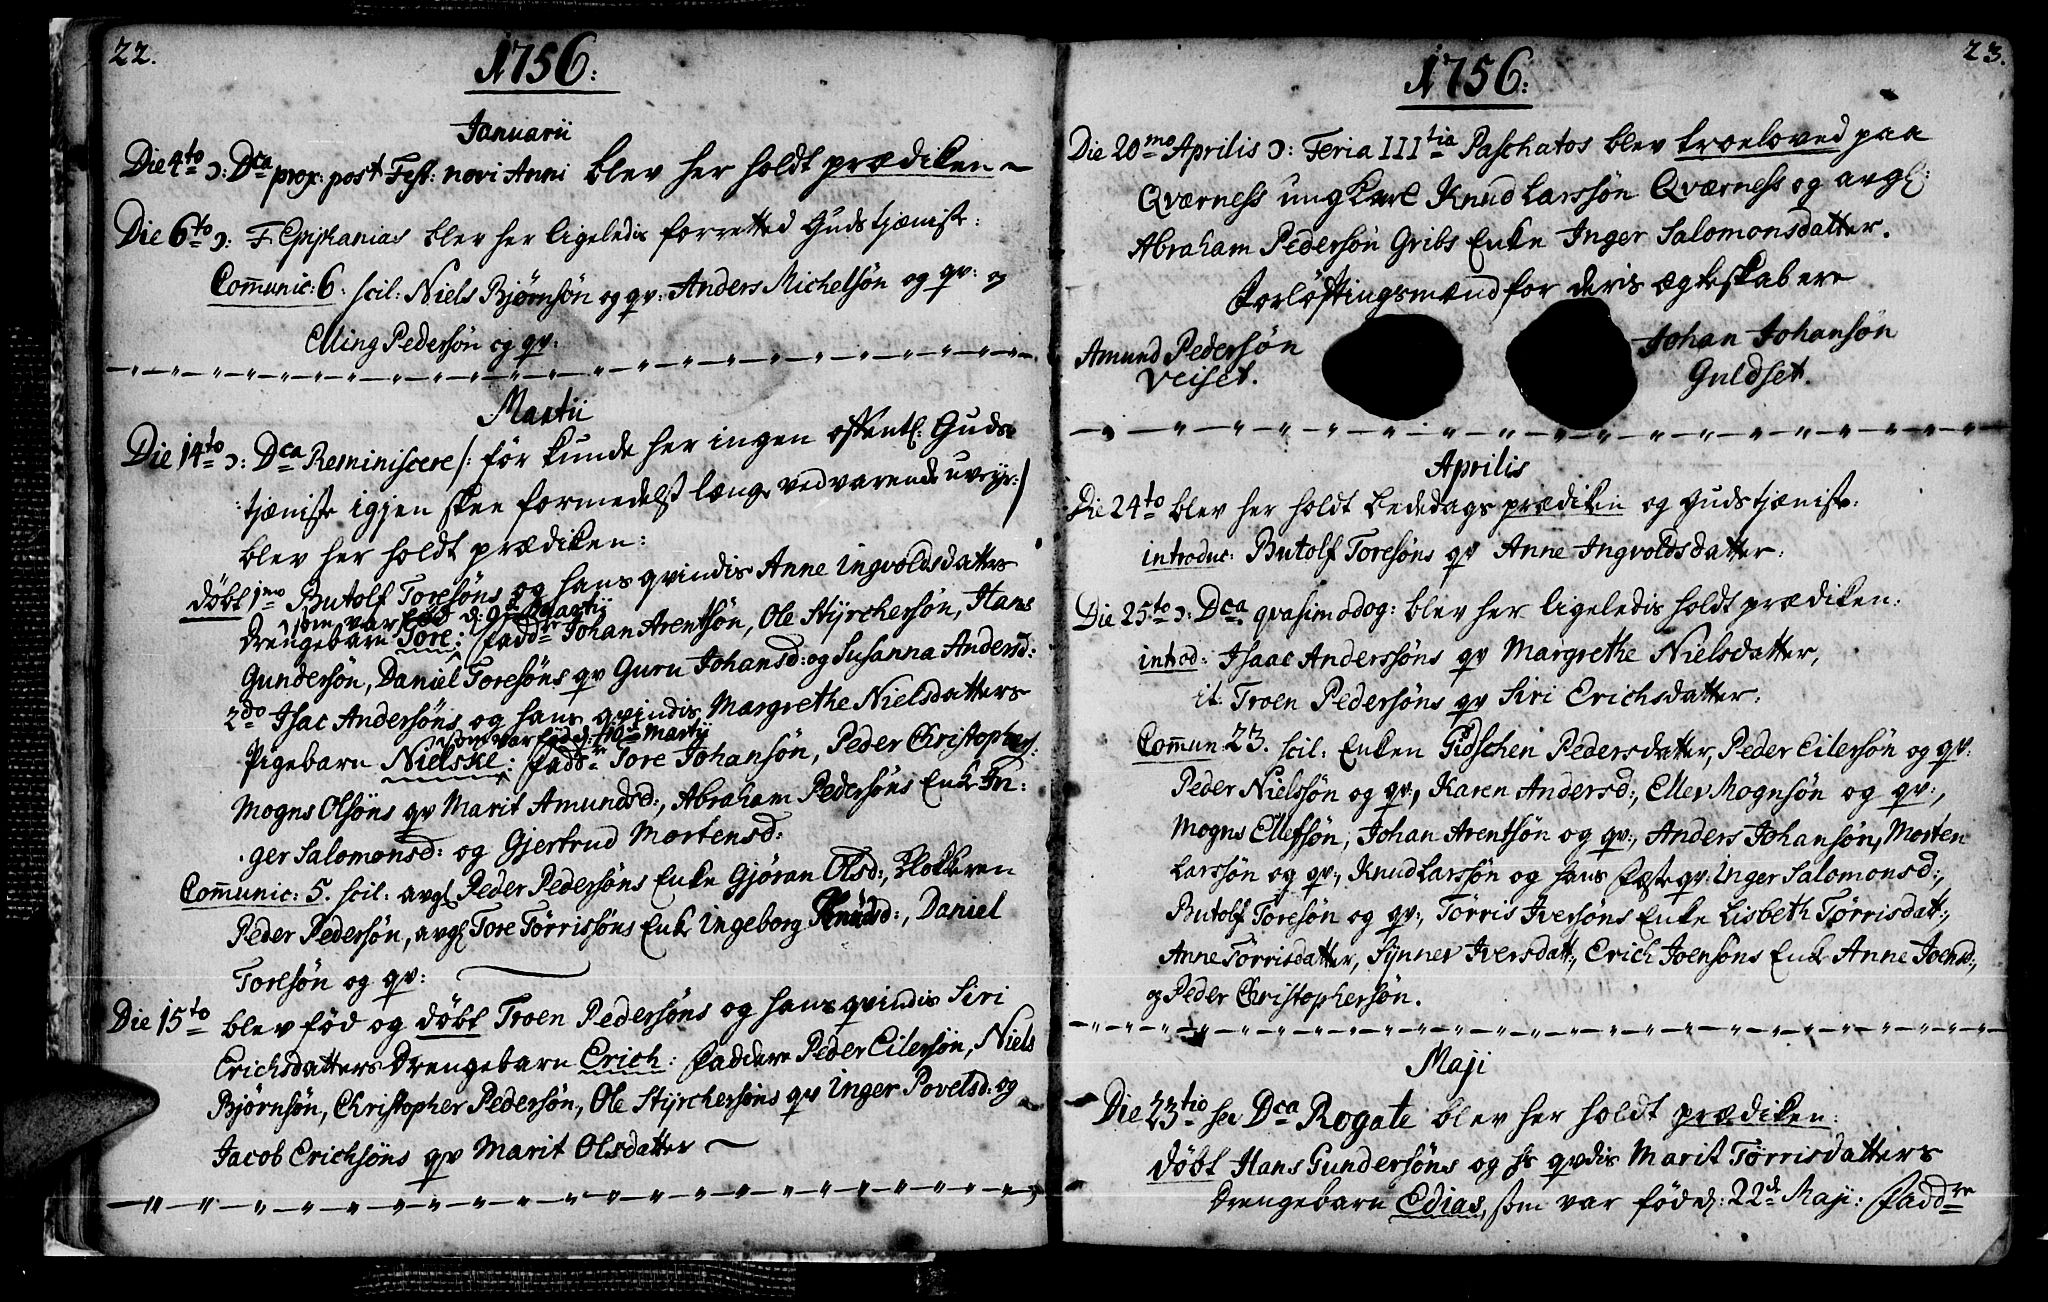 22.
1756:
Januarii
Die 4to ɔ: Dca prox: post Fest: novi Anni blev her holdt prædiken ~
Die 6to ɔ: F Epiphanias blev her ligeledis forretted Gudstjæniste:
Com̄unic: 6. scil: Niels Bjørnsön og qv: Anders Michelsön og qv: og
Elling Pedersön og qv:
Martii
Die 14to ɔ: Dca Reminiscere /: för kunde her ingen offentl: Guds-
tjæniste igjen skee formedelst længe vedvarende uveyr:/
blev her holdt prædiken:
döbt 1mo Butolf Toresöns og hans qvindis Anne Ingvoldsdatters
som var föd d: 9 Martij
Drengebarn Tore: Fadd: Johan Arentsön, Ole Styrchersön, Hans
Gundersön, Daniel Toresöns qv Guru Johansd: og Susanna Andersd:
2do Isac Andersöns og hans qvindis Margrethe Nielsdatters
som var föd d: 10 Martij
Pigebarn Nielske: Fadd: Tore Johansön, Peder Christophers:
Mogns Olsöns qv Marit Amundsd:, Abraham Pedersöns Enke In:
ger Salomonsd: og Gjertrud Mortensd:
Com̄unic: 5. scil: avgl Peder Pedersöns Enke Gjöran Olsd:, Klokkeren
Peder Pedersön, avgl Tore Törrissöns Enke Ingeborg Knudsd:, Daniel
Toresön og qv:
Die 15to blev föd og döbt Troen Pedersöns og hans qvindis Siri
Erichsdatters Drengebarn Erich: Faddere Peder Eilersön, Niels
Bjørnsön, Christopher Pedersön, Ole Styrchersöns qv Inger Povelsd: og
Jacob Erichsöns qv Marit Olsdatter ~
23.
1756:
Die 20mo Aprilis ɔ: Feria IIItia Paschatos blev troeloved paa
Qværness ung Karl Knud Larssön Qværness og avgl:
Abraham Pedersön Gribs Enke Inger Salomonsdatter.
Forlöftingsmænd for deris ægteskab ere
Amund Pedersön Johan Johansön
Veiset. Guldset.
Aprilis
Die 24to blev her holdt Bededags prædiken og Gudstjæniste:
introduc: Butolf Toresöns qv Anne Ingvoldsdatter:
Die 25to ɔ: Dca qvasimodog: blev her ligeledis holdt prædiken:
introd: Isaac Anderssöns qv Margrethe Nielsdatter,
it Troen Pedersöns qv Siri Erichsdatter:
Com̄un: 23. scil: Enken Gidschen Pedersdatter, Peder Eilersön og qv:
Peder Nielssön og qv:, Karen Andersd:, Ellev Mognsön og qv:,
Mogns Ellefsön, Johan Arentsön og qv:, Anders Johansön, Morten
Larssön og qv:, Knud Larssön og hans Fæsteqv: Inger Salomonsd:,
Butolf Toresön og qv:, Törris Iversöns Enke Lisbeth Törrisdatt:,
Anne Törrisdatter, Synnev Iversdatt:, Erich Joensöns Enke Anne Joensd:,
og Peder Christophersön.
Maji
Die 23tio seu Dca Rogate blev her holdt prædiken:
döbt Hans Gundersöns og hs qvdis Marit Törrisdatters
Drengebarn Edias, som var föd d: 22d Maji: Faddre